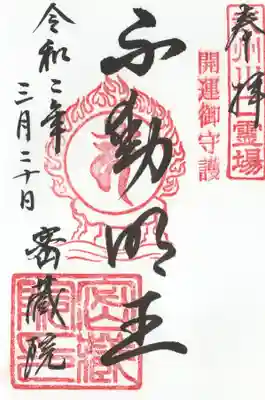 奉拝
開運御守護
不動明王
令和二年
三月二十日
密蔵院